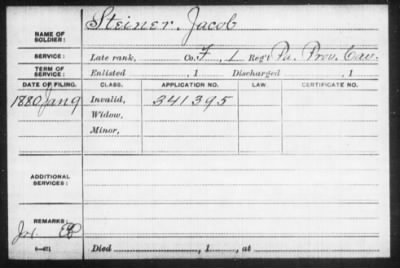 NAME OF SOLDIER: Steiner, Jacob
SERVICE: Late rank, Co. F, 1 Reg't Pa. Prov. Cav.
TERM OF SERVICE: Enlisted , 1 Discharged , 1
DATE OF FILING. CLASS. APPLICATION NO. LAW. CERTIFICATE NO.
1880 Jan 9 Invalid, 341395
Widow,
Minor,
ADDITIONAL SERVICES:
REMARKS:
Died , 1 , at